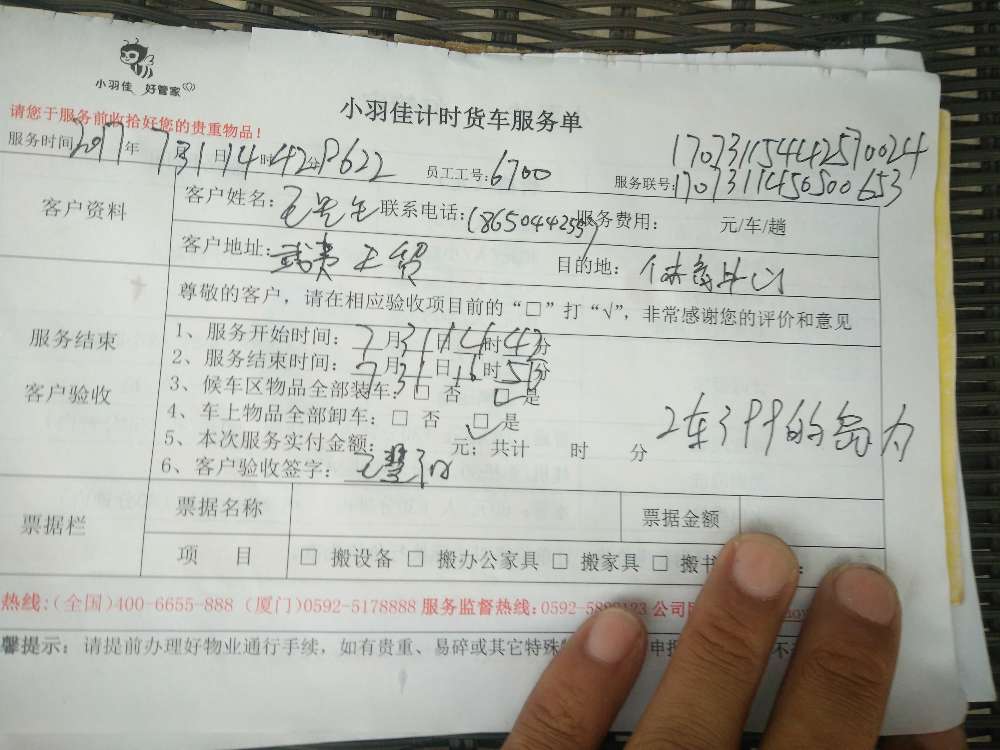 小羽佳 好管家
小羽佳计时货车服务单
请您于服务前收拾好您的贵重物品！
服务时间2017年7月31日14时42分P622 员工工号:6700 服务联号:17073114505500653
17073115442570024
客户资料 客户姓名: 王先生 联系电话: 服务费用: 元/车/趟
客户地址: 目的地: 体育中心
尊敬的客户，请在相应验收项目前的“□”打“√”，非常感谢您的评价和意见
服务结束
客户验收
1、服务开始时间: 7月31日14时42分
2、服务结束时间: 7月31日16时53分
3、候车区物品全部装车: □ 否 □ 是
4、车上物品全部卸车: □ 否 □ 是
5、本次服务实付金额: 元; 共计 时 分
2车399的
6、客户验收签字:
票据栏 票据名称 票据金额
项 目 □ 搬设备 □ 搬办公家具 □ 搬家具 □ 搬书
热线:(全国)400-6655-888 (厦门)0592-5178888 服务监督热线:0592-5 123 公司
馨提示: 请提前办理好物业通行手续，如有贵重、易碎或其它特殊